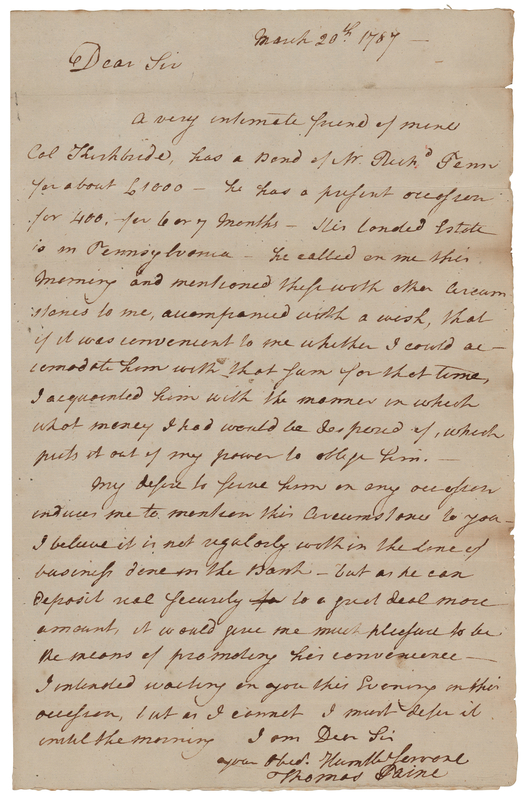 March 20th. 1787 —
Dear Sir
A very intimate friend of mine
Col Kirkbride, has a Bond of Mr. Richd Penn
for about £1000 — he has a present occasion
for 400,– for 6 or 7 Months – His landed Estate
is in Pennsylvania – he called on me this
Morning and mentioned these with other Circum
stances to me, accompanied with a wish, that
if it was convenient to me whether I could ac–
comodate him with that sum for that time,
I acquainted him with the manner in which
what money I had would be desposed of, which
puts it out of my power to oblige him. —
My desire to serve him on any occasion
induces me to mention this Circumstance to you–
I believe it is not regularly within the line of
business done in the Bank – but as he can
deposit real security to a great deal more
amount, it would give me much pleasure to be
the means of promoting his convenience —
I intended waiting on you this Evening on this
occasion, but as I cannot I must defer it
until the morning I am Dear Sir
your Obedt. Humble Servant
Thomas Paine